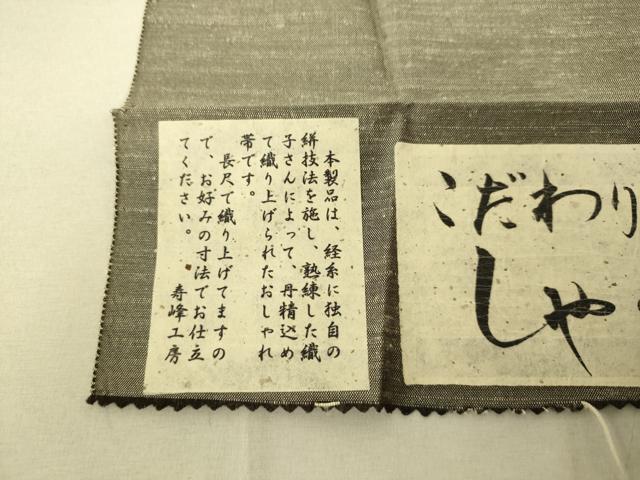 こだわり
しゃ
本製品は、経糸に独自の
絣技法を施し、熟練した織
子さんによって、丹精込め
て織り上げられたおしゃれ
帯です。
長尺で織り上げてますの
で、お好みの寸法でお仕立
てください。
寿峰工房